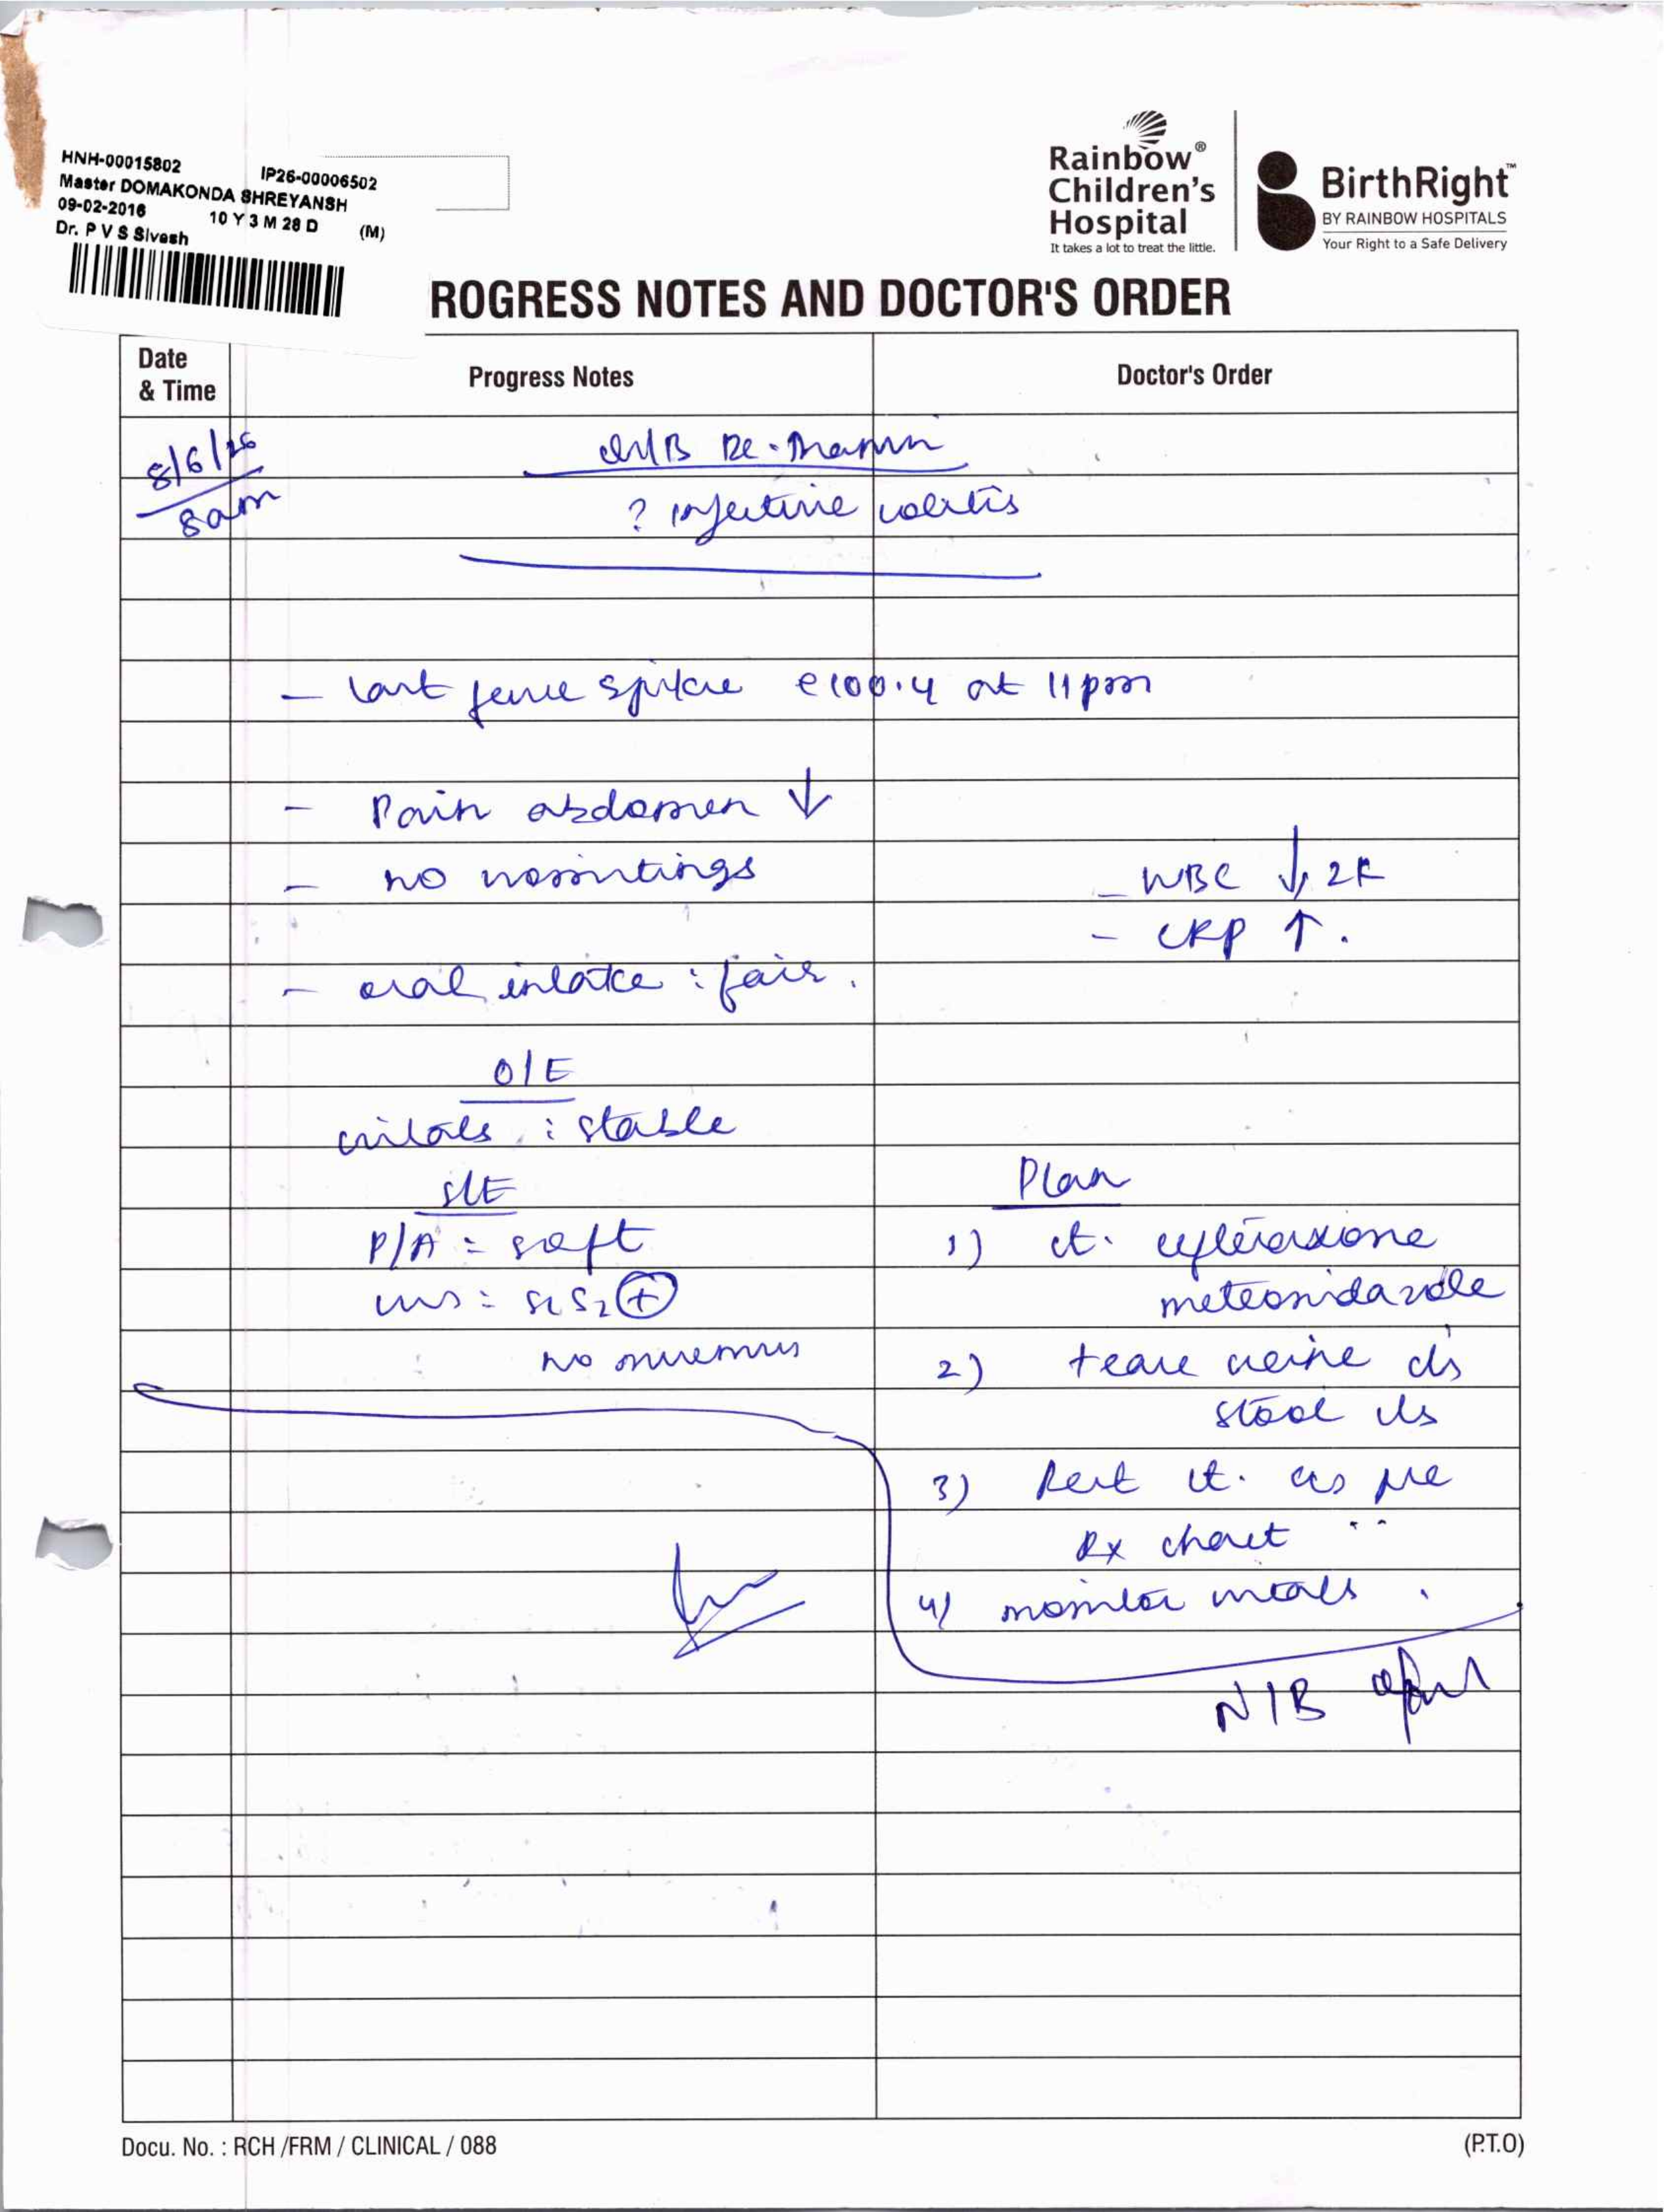 HNH-00015802
IP26-00006502
Master DOMAKONDA SHREYANSH
09-02-2016 10 Y 3 M 28 D (M)
Dr. P V S Sivesh
Rainbow®
Children's
Hospital
It takes a lot to treat the little.
BirthRight™
BY RAINBOW HOSPITALS
Your Right to a Safe Delivery
ROGRESS NOTES AND DOCTOR'S ORDER
Date
& Time
Progress Notes
Doctor's Order
8/6/26
8am
? infective colitis
- last fever spike @ 100.4 at 11pm
- Pain abdomen ↓
- no vomitings
- WBC ↓, 2K
- CRP ↑.
- oral intake : fair.
O/E
vitals : stable
S/E
Plan
P/A = soft
1) ct. ceftriaxone
CVS = S1S2 +
metronidazole
no murmurs
2) trace urine c/s
stool c/s
3) Rest ct. as per
Rx chart
4) monitor vitals.
N/B
Docu. No. : RCH /FRM / CLINICAL / 088
(P.T.O)